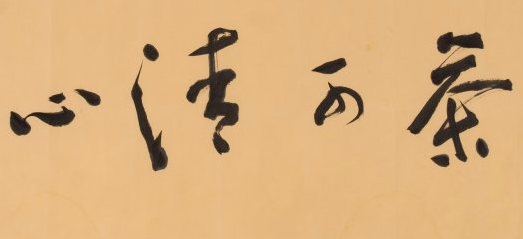 茶可清心